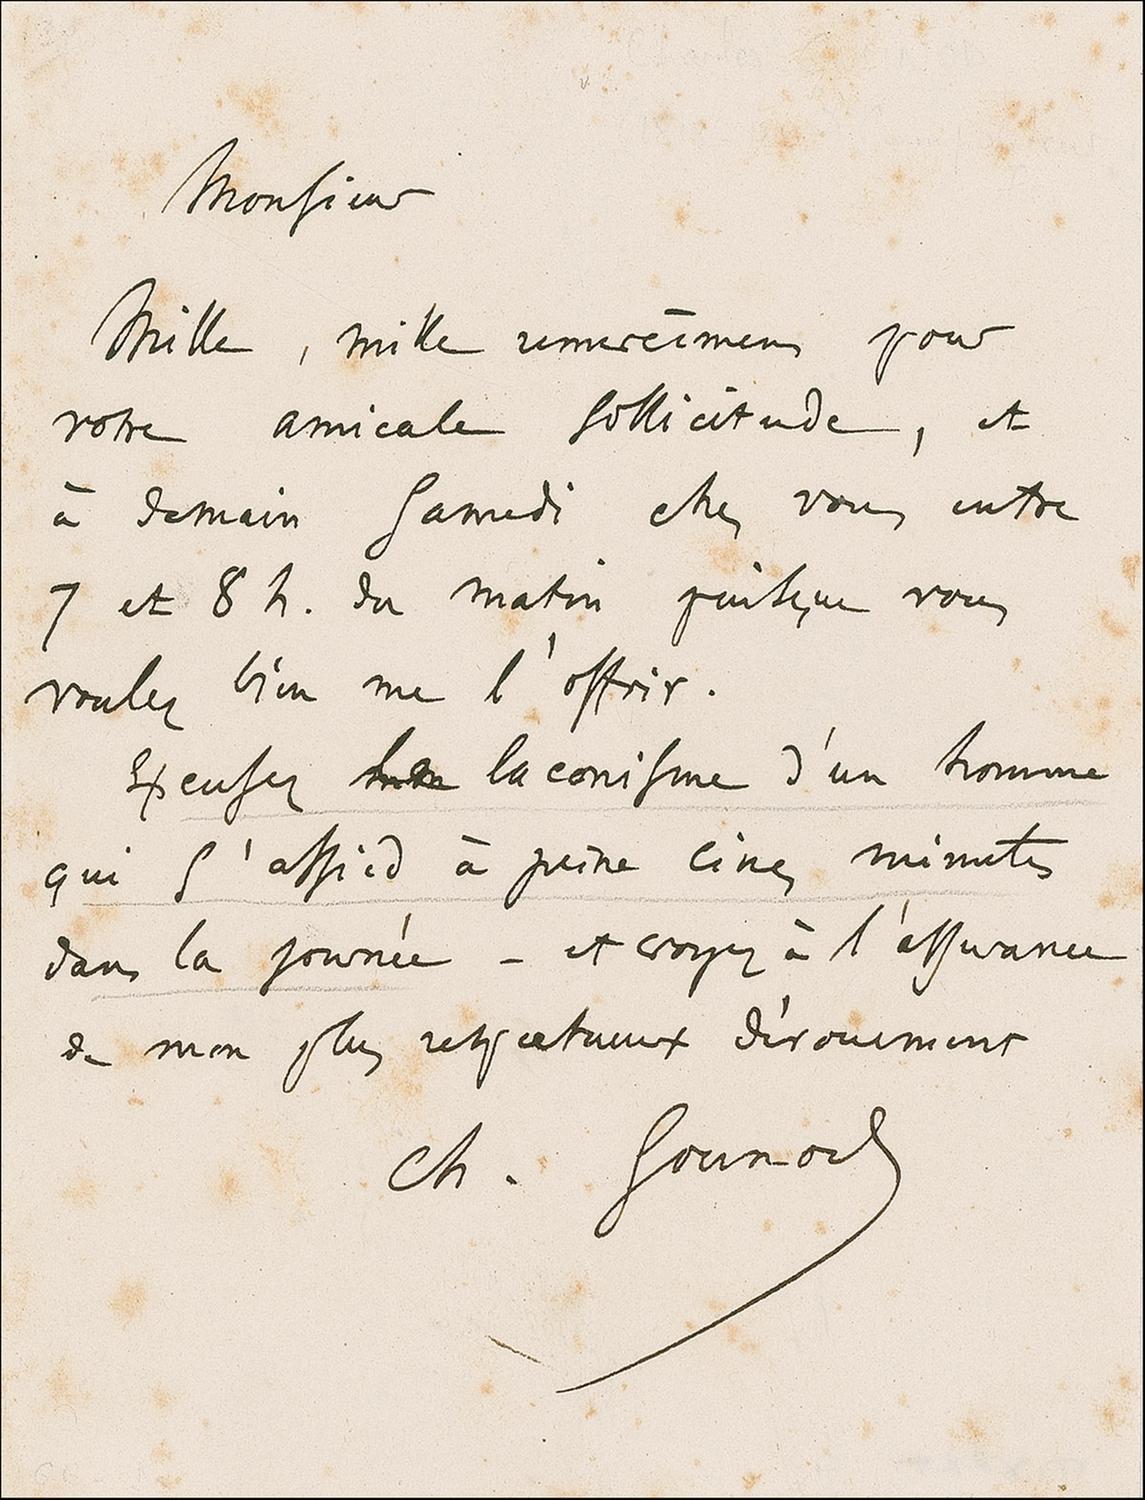 Monsieur
Mille, mille remerciemens pour
votre amicale sollicitude, et
à demain Samedi chez vous entre
7 et 8 h. du matin puisque vous
voulez bien me l'offrir.
Excusez laconisme d'un homme
qui s'assied à peine cinq minutes
dans la journée - et croyez à l'assurance
de mon plus respectueux dévouement
Ch. Gounod